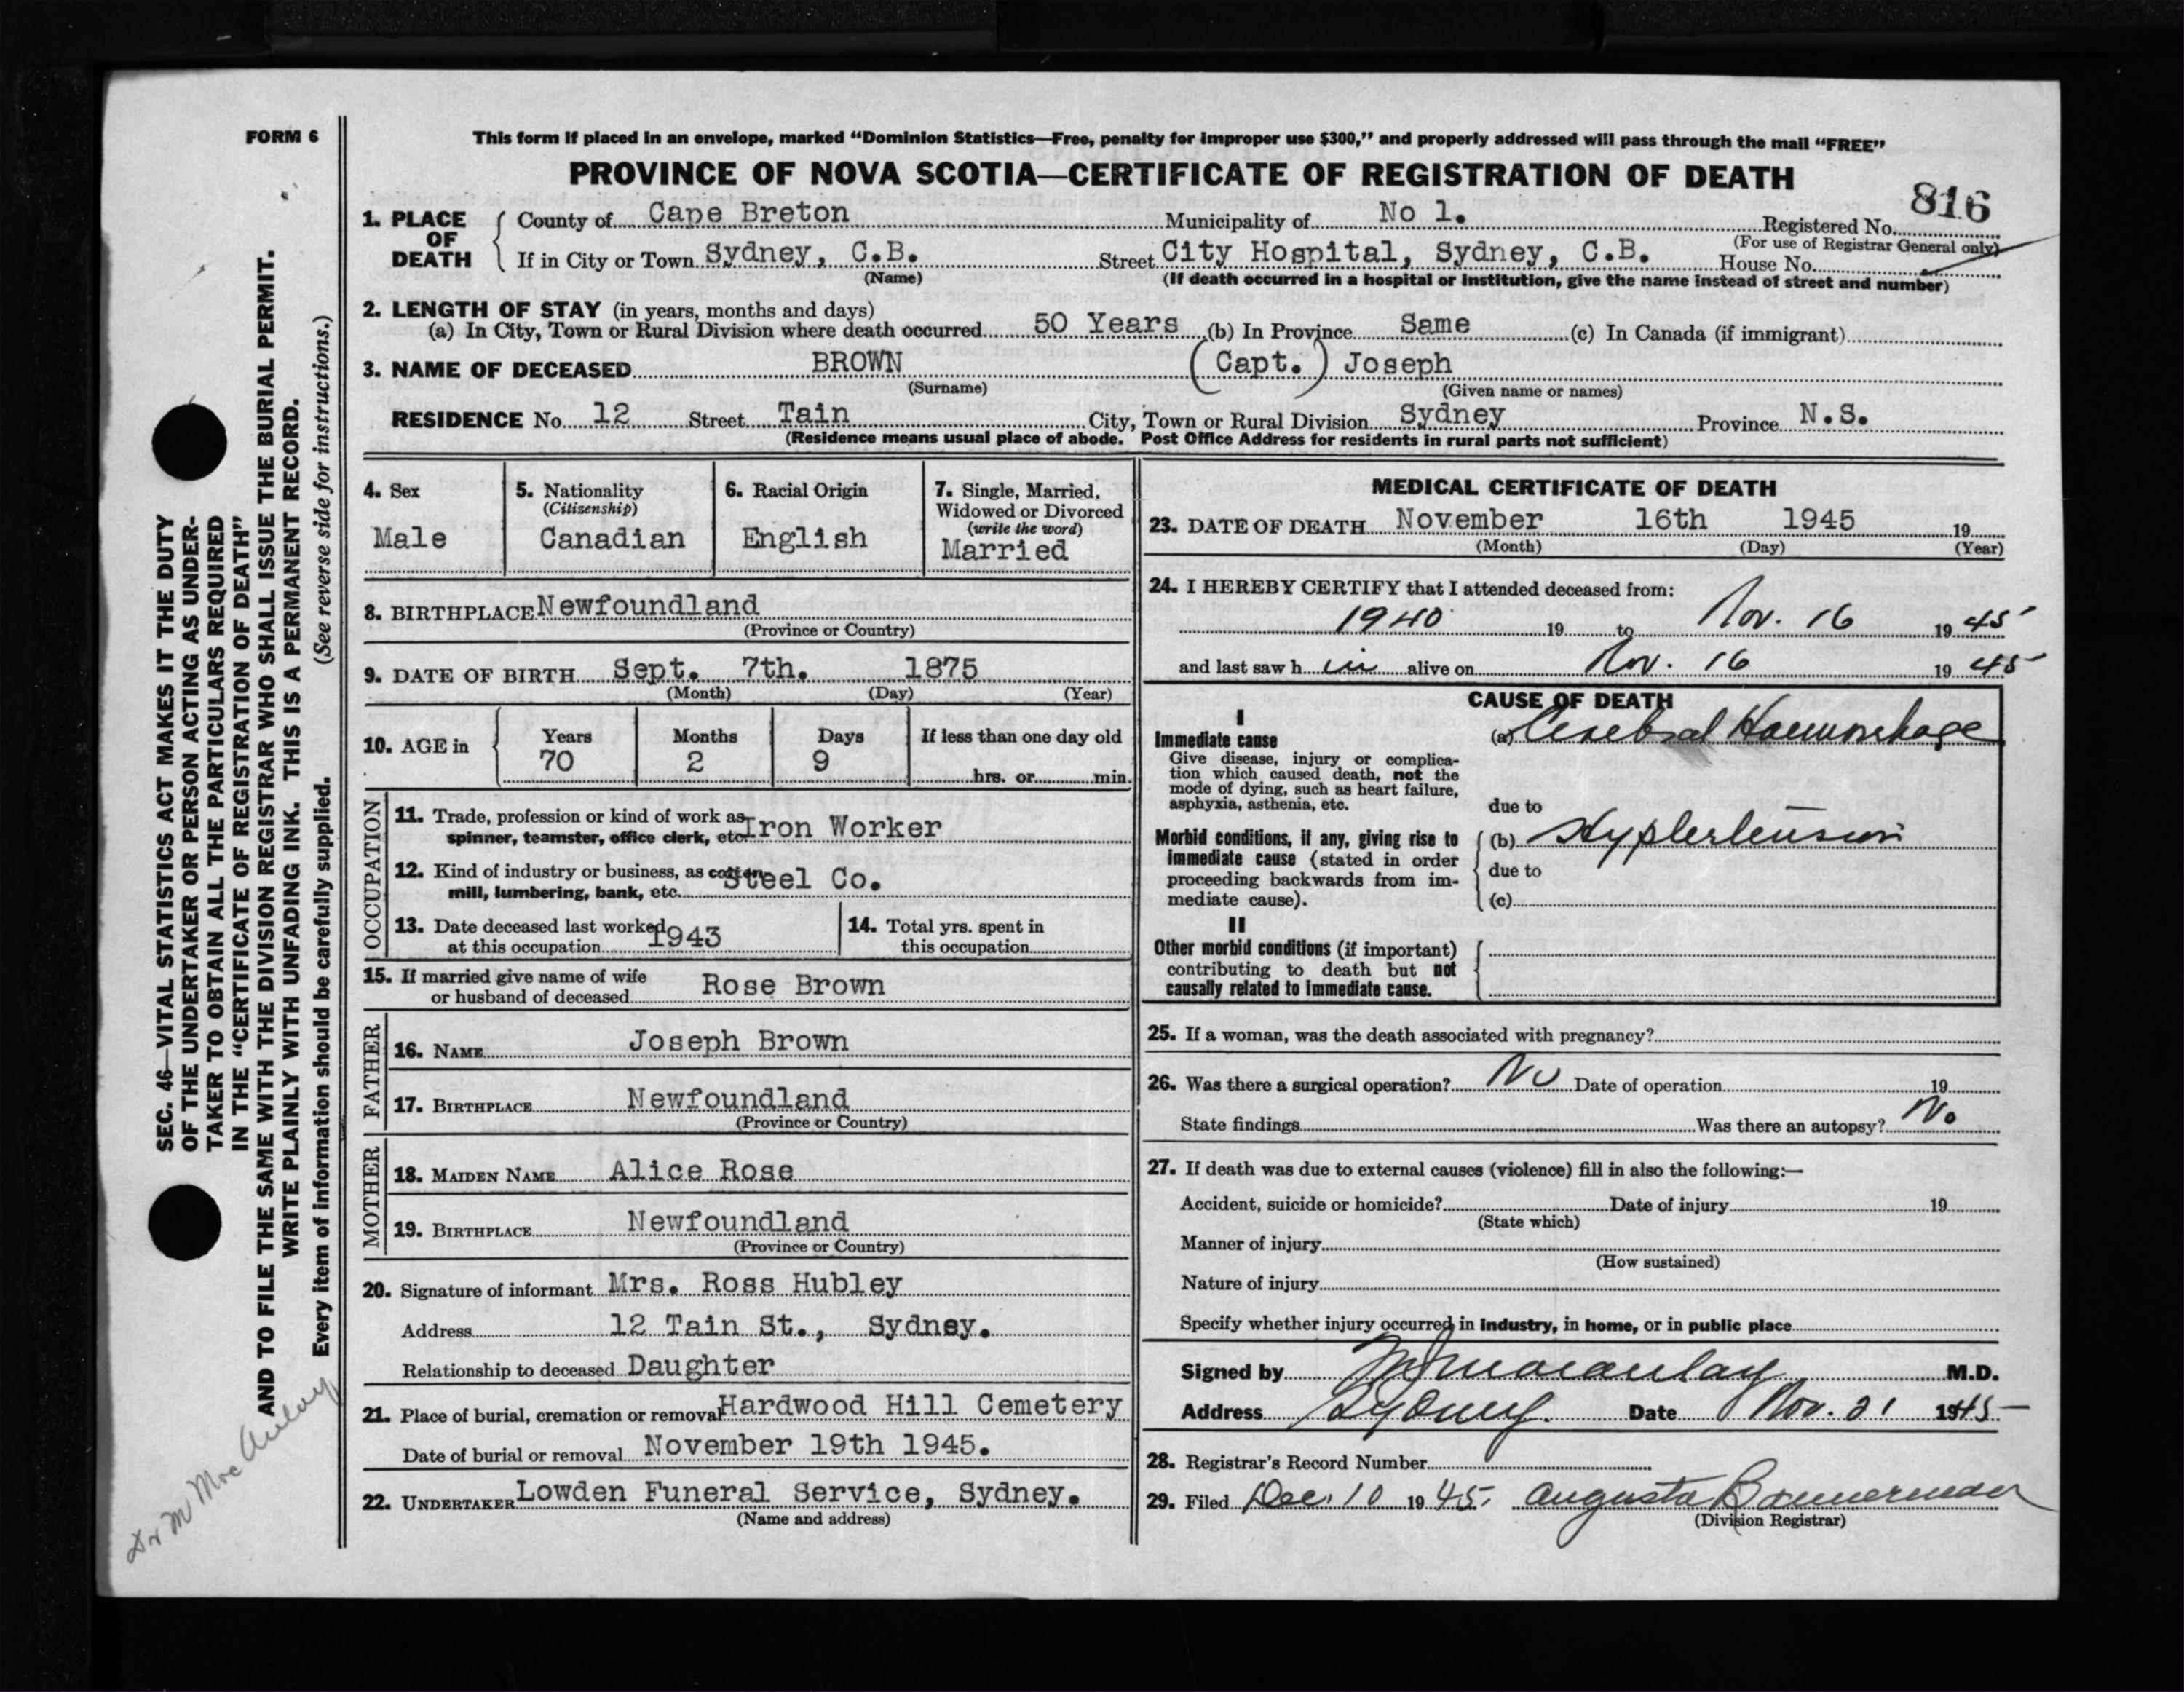 FORM 6
This form if placed in an envelope, marked “Dominion Statistics—Free, penalty for improper use $300,” and properly addressed will pass through the mail “FREE”
PROVINCE OF NOVA SCOTIA—CERTIFICATE OF REGISTRATION OF DEATH
816
1. PLACE OF DEATH
County of Cape Breton Municipality of No 1. Registered No.
(For use of Registrar General only)
If in City or Town Sydney, C.B. Street City Hospital, Sydney, C.B. House No.
(Name) (If death occurred in a hospital or institution, give the name instead of street and number)
2. LENGTH OF STAY (in years, months and days)
(a) In City, Town or Rural Division where death occurred 50 Years (b) In Province Same (c) In Canada (if immigrant)
3. NAME OF DECEASED BROWN (Capt.) Joseph
(Surname) (Given name or names)
RESIDENCE No. 12 Street Tain City, Town or Rural Division Sydney Province N.S.
(Residence means usual place of abode. Post Office Address for residents in rural parts not sufficient)
4. Sex
Male
5. Nationality
(Citizenship)
Canadian
6. Racial Origin
English
7. Single, Married,
Widowed or Divorced
(write the word)
Married
8. BIRTHPLACE Newfoundland
(Province or Country)
9. DATE OF BIRTH Sept. 7th. 1875
(Month) (Day) (Year)
10. AGE in
Years Months Days If less than one day old
70 2 9 hrs. or min.
OCCUPATION
11. Trade, profession or kind of work as
spinner, teamster, office clerk, etc. Iron Worker
12. Kind of industry or business, as cotton
mill, lumbering, bank, etc. Steel Co.
13. Date deceased last worked
at this occupation 1943
14. Total yrs. spent in
this occupation
15. If married give name of wife
or husband of deceased Rose Brown
FATHER
16. NAME Joseph Brown
17. BIRTHPLACE Newfoundland
(Province or Country)
MOTHER
18. MAIDEN NAME Alice Rose
19. BIRTHPLACE Newfoundland
(Province or Country)
20. Signature of informant Mrs. Ross Hubley
Address 12 Tain St., Sydney.
Relationship to deceased Daughter
21. Place of burial, cremation or removal Hardwood Hill Cemetery
Date of burial or removal November 19th 1945.
22. UNDERTAKER Lowden Funeral Service, Sydney.
(Name and address)
MEDICAL CERTIFICATE OF DEATH
23. DATE OF DEATH November 16th 1945 19
(Month) (Day) (Year)
24. I HEREBY CERTIFY that I attended deceased from:
1940 19 to Nov. 16 19 45
and last saw h im alive on Nov. 16 19 45
CAUSE OF DEATH
I
Immediate cause
Give disease, injury or complica-
tion which caused death, not the
mode of dying, such as heart failure,
asphyxia, asthenia, etc.
(a) Cerebral Haemorrhage
due to
Morbid conditions, if any, giving rise to
immediate cause (stated in order
proceeding backwards from im-
mediate cause).
(b) Hypertension
due to
(c)
II
Other morbid conditions (if important)
contributing to death but not
causally related to immediate cause.
25. If a woman, was the death associated with pregnancy?
26. Was there a surgical operation? No Date of operation 19
State findings Was there an autopsy? No
27. If death was due to external causes (violence) fill in also the following:—
Accident, suicide or homicide? Date of injury 19
(State which)
Manner of injury
(How sustained)
Nature of injury
Specify whether injury occurred in industry, in home, or in public place
Signed by Macaulay M.D.
Address Sydney. Date Nov. 21 1945
28. Registrar's Record Number
29. Filed Dec. 10 19 45. Augusta Bannerman
(Division Registrar)
SEC. 46—VITAL STATISTICS ACT MAKES IT THE DUTY
OF THE UNDERTAKER OR PERSON ACTING AS UNDER-
TAKER TO OBTAIN ALL THE PARTICULARS REQUIRED
IN THE “CERTIFICATE OF REGISTRATION OF DEATH”
AND TO FILE THE SAME WITH THE DIVISION REGISTRAR WHO SHALL ISSUE THE BURIAL PERMIT.
WRITE PLAINLY WITH UNFADING INK. THIS IS A PERMANENT RECORD.
Every item of information should be carefully supplied. (See reverse side for instructions.)
Dr M MacAulay